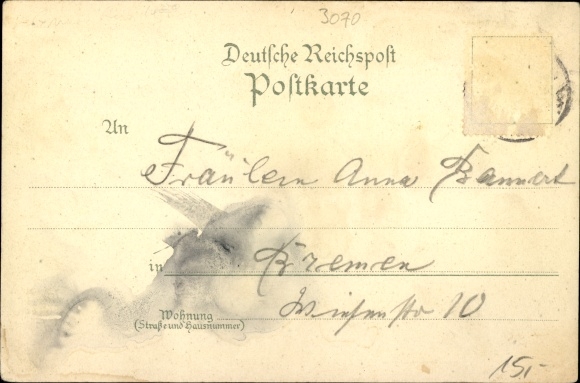 3070
Deutsche Reichspost
Postkarte
An
Fräulein Anna
in Bremen
Wohnung
(Straße und Hausnummer)
Wiesenstr 10
15,-